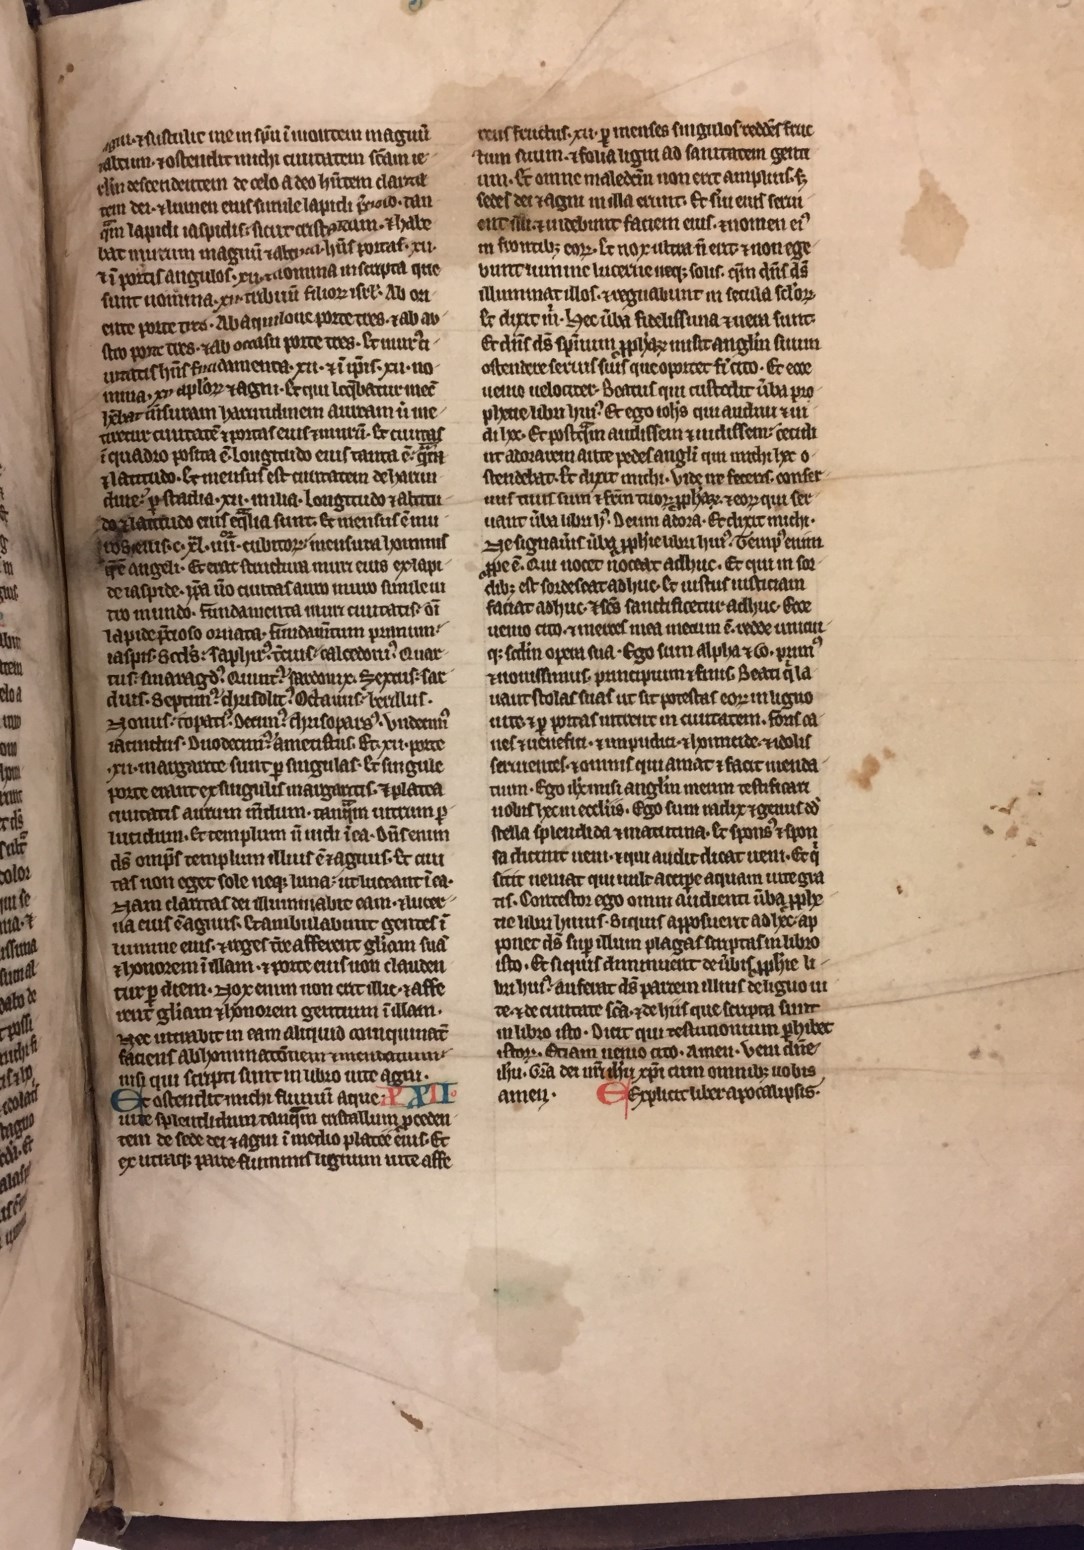 agni · ⁊ sustulit me in sp̄u ī montem magnū
altum · ⁊ ostendit michi ciuitatem sc̄am ie
rl̄m descendentem de celo a deo hn̄tem clarita
tem dei · ⁊ lumen eius simile lapidi p̄cioso · tan
q̄m lapidi iaspidis · sicut cristallum · ⁊ habe
bat murum magnū ⁊ altum hn̄s portas · xii ·
⁊ ī portis angulos · xii · ⁊ nomina inscripta que
sunt nomina · xii · tribuū filioꝝ isrl̄ · Ab ori
ente porte tres · Ab aquilone porte tres · ⁊ ab au
stro porte tres · ⁊ ab occasu porte tres · Et murꝰ ci
uitatis hn̄s fundamenta · xii · ⁊ ī ip̄is · xii · no
mina · xii · apl̓oꝝ ⁊ agni · Et qui loq̄batur mec̄
hēbat m̄suram harundinem auream ut̄ me
tiretur ciuitatē ⁊ portas eius ⁊ murū · Et ciuitas
ī quadro posita ē · longitudo eius tanta ē · q̄nta
⁊ latitudo · Et mensus est ciuitatem de harun
dine · ꝑ stadia · xii · milia · longitudo ⁊ altitu
do ⁊ latitudo eius eq̄lia sunt · Et mensus ē mu
ros eius · c · xl · iiii · cubitoꝝ · mensura hominis
que ē angeli · Et erat structura muri eius ex lapi
de iaspide · ip̄a ūo ciuitas auro mūdo simile ui
tro mundo · fundamenta muri ciuitatis · oī
lapide p̄cioso ornata · fundam̄tum primum ·
iaspis · Scd̄s · saphirꝰ · t̄cius · calcedoniꝰ · Quar
tus · smaragdꝰ · Quintꝰ · sardonix · Sextus · sar
dius · Septimꝰ · chrisolitꝰ · Octauus · berillus ·
Nonus · topatiꝰ · Decimꝰ · chrisoparsꝰ · Undecimꝰ
iacinctus · Duodecimꝰ · ametistus · Et · xii · porte
· xii · margarite sunt ꝑ singulas · Et singule
porte erant ex singulis margaritis · ⁊ platea
ciuitatis aurum mūdum · tanq̄m uitrum ꝑ
lucidum · Et templum n̄ uidi ī ea · Dn̄s enim
ds̄ omps̄ templum illius ē ⁊ agnus · Et ciui
tas non eget sole neqꝫ luna · ut luceant ī ea ·
Nam claritas dei illuminabit eam · ⁊ lucer
na eius ē agnus · Et ambulabunt gentes ī
lumine eius · ⁊ reges tr̄e afferent gl̄iam suā
⁊ honorem ī illam · ⁊ porte eius non clauden
tur ꝑ diem · Nox enim non erit illic · ⁊ affe
rent gliam ⁊ honorem gentium ī illam ·
Nec intrabit in eam aliquid coinquinat̄
faciens abhominatōnem ⁊ mendatium
nisi qui scripti sunt in libro uite agni ·
Et ostendit michi fluuiū aque XXII
uite splendidum tanq̄m cristallum ꝓceden
tem de sede dei ⁊ agni ī medio platee eius · Et
ex utraqꝫ parte fluminis lignum uite affe
rens fructus · xii · ꝑ menses singulos reddēs fruc
tum suum · ⁊ folia ligni ad sanitatem genti
um · Et omne maledc̄m non erit amplius · sꝫ
sedes dei ⁊ agni in illa erunt · Et s̄ui eius serui
ent illi · ⁊ uidebunt faciem eius · ⁊ nomen eiꝰ
in frontibꝫ eoꝝ · Et nox ultra n̄ erit · ⁊ non ege
bunt lumine lucerne neqꝫ solis · q̄m dn̄s ds̄
illuminat illos · ⁊ regnabunt in secula scl̓oꝝ
Et dixit m̄ · Hec ūba fidelissima ⁊ uera sunt ·
Et dn̄s ds̄ spirituum ꝓphaꝝ misit anglm̄ suum
ostendere seruis suis que oportet fi̓ cito · Et ecce
uenio uelociter · Beatus qui custodit ūba pro
phetie libri huiꝰ Et ego ioh̄s qui audiui ⁊ ui
di hec · Et postq̄m audissem ⁊ uidissem · cecidi
ut adorarem ante pedes angl̄i qui michi hec o
stendebat · Et dixit michi · Vide ne feceris · conser
uus tuus sum ⁊ fr̄m tuoꝝ ꝓphaꝝ · ⁊ eoꝝ qui ser
uant ūba libri hꝰ · Deum adora · Et dixit michi ·
Ne signaūis ūba ꝓphie libri huiꝰ · Tempꝰ enim
ꝓpe ē · Qui nocet noceat adhuc · Et qui in sor
dibꝫ est sordescat adhuc · Et iustus iusticiam
faciat adhuc · ⁊ scs̄ sanctificetur adhuc · Ecce
uenio cito · ⁊ merces mea mecum ē · redde unicui
qꝫ scdm̄ opera sua · Ego sum alpha ⁊ ω · primꝰ
⁊ nouissimus · principium ⁊ finis · Beati q̓ la
uant stolas suas ut sit potestas eoꝝ in ligno
uite · ⁊ ꝑ portas intrent in ciuitatem · foris ca
nes ⁊ uenefici · ⁊ impudici · ⁊ homicide · ⁊ idolis
seruientes · ⁊ omnis qui amat ⁊ facit menda
tium · Ego ih̄c misi anglm̄ meum testificari
uobis hec in eccl̄iis · Ego sum radix ⁊ genus dd̄
stella splendida ⁊ matutina · Et sponsꝰ ⁊ spon
sa dicunt ueni · ⁊ qui audit dicat ueni · Et q̓
sitit ueniat qui uult accipe aquam uite gra
tis · Contestor ego omni audienti ūba ꝓphe
tie libri huius · Siquis apposuerit ad hec · ap
ponet ds̄ suꝑ illum plagas scriptas in libro
isto · Et siquis diminuerit de ūbis ꝓphie li
bri huiꝰ · auferat ds̄ partem illius de ligno ui
te · ⁊ de ciuitate sc̄a · ⁊ de hiis que scripta sunt
in libro isto · Dicit qui testimonium ꝑhibet
istoꝝ · Etiam uenio cito · amen · Veni dn̄e
ihu · Gr̄a dei nr̄i ihū xp̄i cum omnibꝫ uobis
amen · Explicit liber apocalipsis ·